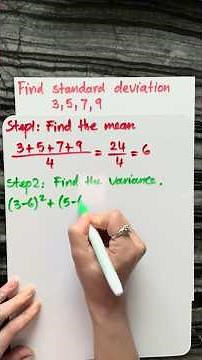 Find standard deviation
3, 5, 7, 9
Step1: Find the mean
3+5+7+9/4 = 24/4 = 6
Step2: Find the variance.
(3-6)² + (5-6